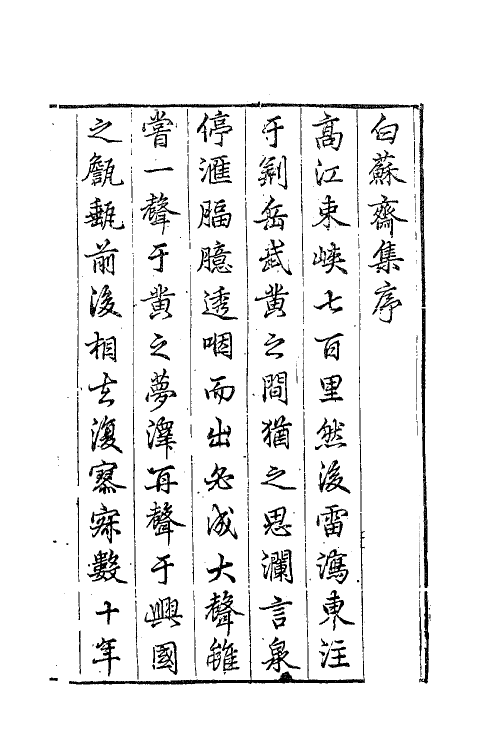 白蘇齋集序
高江東峽七百里然後雷瀉東注
于荆岳武黄之間猶之思瀾言泉
停滙膈臆透咽而出必成大聲雖
嘗一聲于黄之夢澤再聲于興國
之甔甀前後相去復寥寥數十年